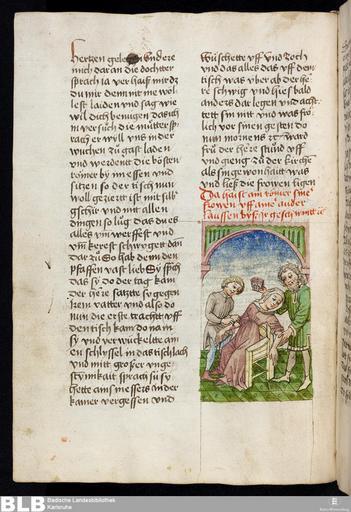 hertzen gelegen Vnd ere
mich dar an die dochter
sprach ia ver haiß mir dz
du mir dein mit me wol
lest laiden vnd sag wie
wil dich benuigen das ich
in versuch die mutter sp
rach er wyll vns in der
wuchen zu gast laden
vnd werdent die bösten
römer by im essen vnd
sitzen so der tisch nun
woll geziert ist mit silb
geschir vnd mit allen
dingen so lüg das du es
alles vm werffest vnd
vm kerest so hwyget dan
dar zu So hab dein den
pfaffen vast lieb Sy sprach
das sy do der tag kam
der here satzte sy gegen
irem vatter vnd also do
nun die erste tracht vff
den tisch kam do nam
sy vnd ver wickelte am
en schlyssel in das tischlach
vnd mit groser vnge
stymikait sprach su sy
hette ains messers in der
kamer vergessen vnd
wüschette vff vnd zoch
vnd das alles das vff dem
tisch was vber ab der he
re schwig vnd hies bald
anders dar legen vnd acht
tett sin nit vnd was frö
lich vor sinen gesten do
nun mornens ward
frü der here stund vff
vnd gieng zu der kirche
als sin gewonhait was
vnd ließ die frowen ligen
Da haist ain römer sine
frowen vff ainer ander
BLB
Badische Landesbibliothek
Karlsruhe
Baden-Württemberg